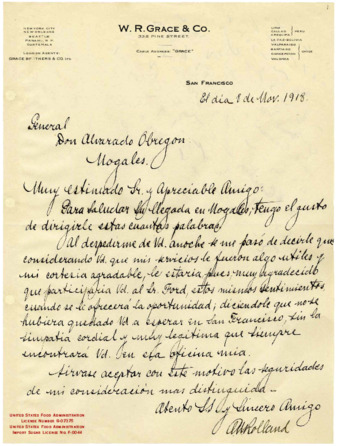 W. R. GRACE & CO.
332 PINE STREET
CABLE ADDRESS "GRACE"
NEW YORK CITY
SEATTLE
GUATEMALA
LONDON AGENTS:
GRACE BROTHERS & CO. LTD.
LIMA
CALLAO
PERU
LA PAZ-BOLIVIA
VALPARAISO
SANTIAGO
CONCEPCION
CHILE
VALDIVIA
SAN FRANCISCO
El dia 8 de Nov. 1918.
General
Don Alvarado Obregon
Nogales.
Muy estimado Sr. y Apreciable Amigo:
Para saludar su llegada en Nogales, tengo el gusto
de dirigirle estas cuantas palabras.
Al despedirme de Vd. anoche se me pasó de decirle que
considerando Vd. que mis servicios le fueron algo utiles y
mi cortesia agradable, le estaria pues muy agradecido
que participaria Vd. al Sr. Ford, estos mismos sentimientos
cuando se le ofrecerá la oportunidad; diciendole que no se
hubiera quedado Vd. a esperar en San Francisco, sin la
simpatia cordial y muy legitima que siempre
encontrara Vd. en esa oficina mia.
Sirvase aceptar con este motivo las seguridades
de mi consideracion mas distinguida.
Atento S.S. y Sincero Amigo
Rolland
UNITED STATES FOOD ADMINISTRATION
LICENSE NUMBER
UNITED STATES FOOD ADMINISTRATION
IMPORT SUGAR LICENSE NO.